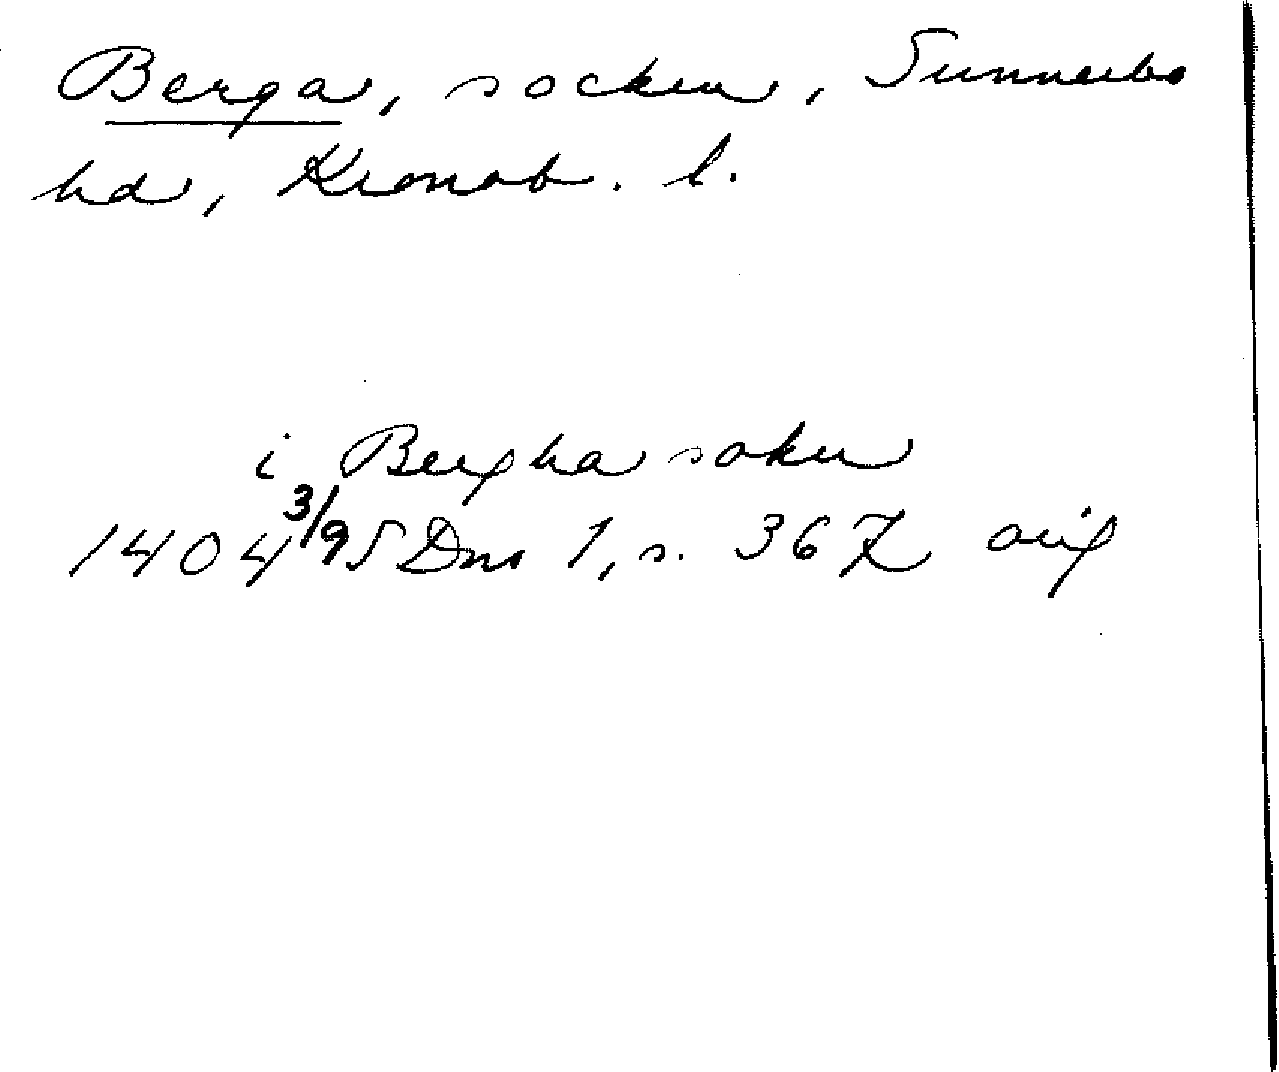 Berga, socken, Sunnerbo
hd, Kronob. l.
i Bergha sokn
1404 3/9 SDns 1, s. 367 orig